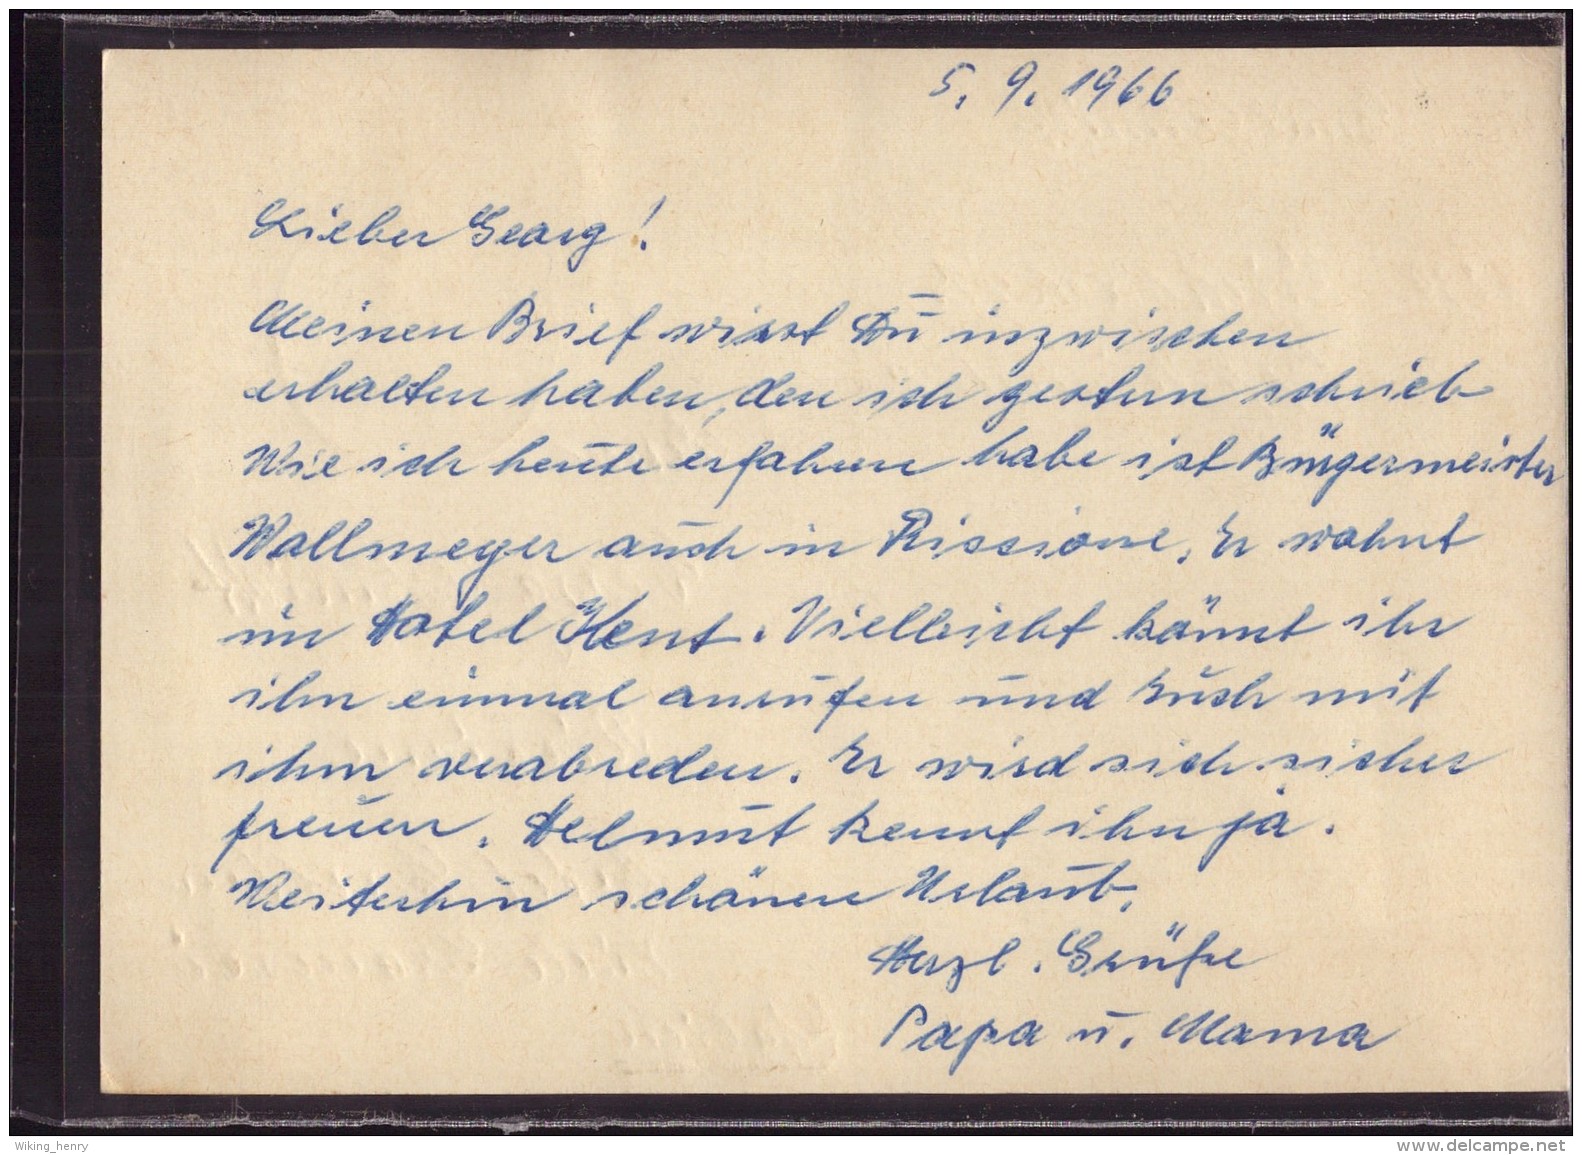 5. 9. 1966
Lieber Georg!
Meinen Brief wirst Du inzwischen
erhalten haben, den ich gestern schrieb
Wie ich heute erfahren habe ist Bürgermeister
Wallmeyer auch in Rissione. Er wohnt
im Hotel Kent. Vielleicht könnt ihr
ihn einmal anrufen und Euch mit
ihm verabreden. Er wird sich sicher
freuen. Helmut kennt ihn ja.
Weiterhin schönen Urlaub.
Herzl. Grüße
Papa u. Mama
Wiking_henry
www.delcampe.net